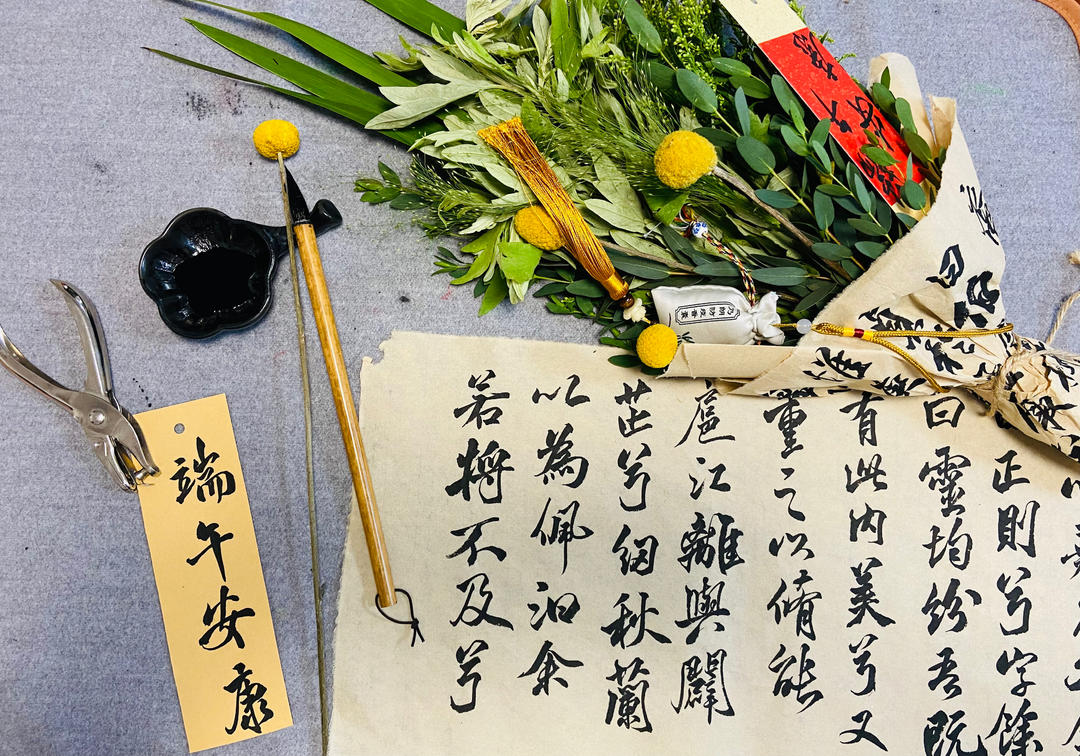 正則兮字餘
曰靈均紛吾既
有此内美兮又
重之以脩能
扈江離與闢
芷兮紉秋蘭
以為佩汩余
若將不及兮
端午安康
防疫香囊